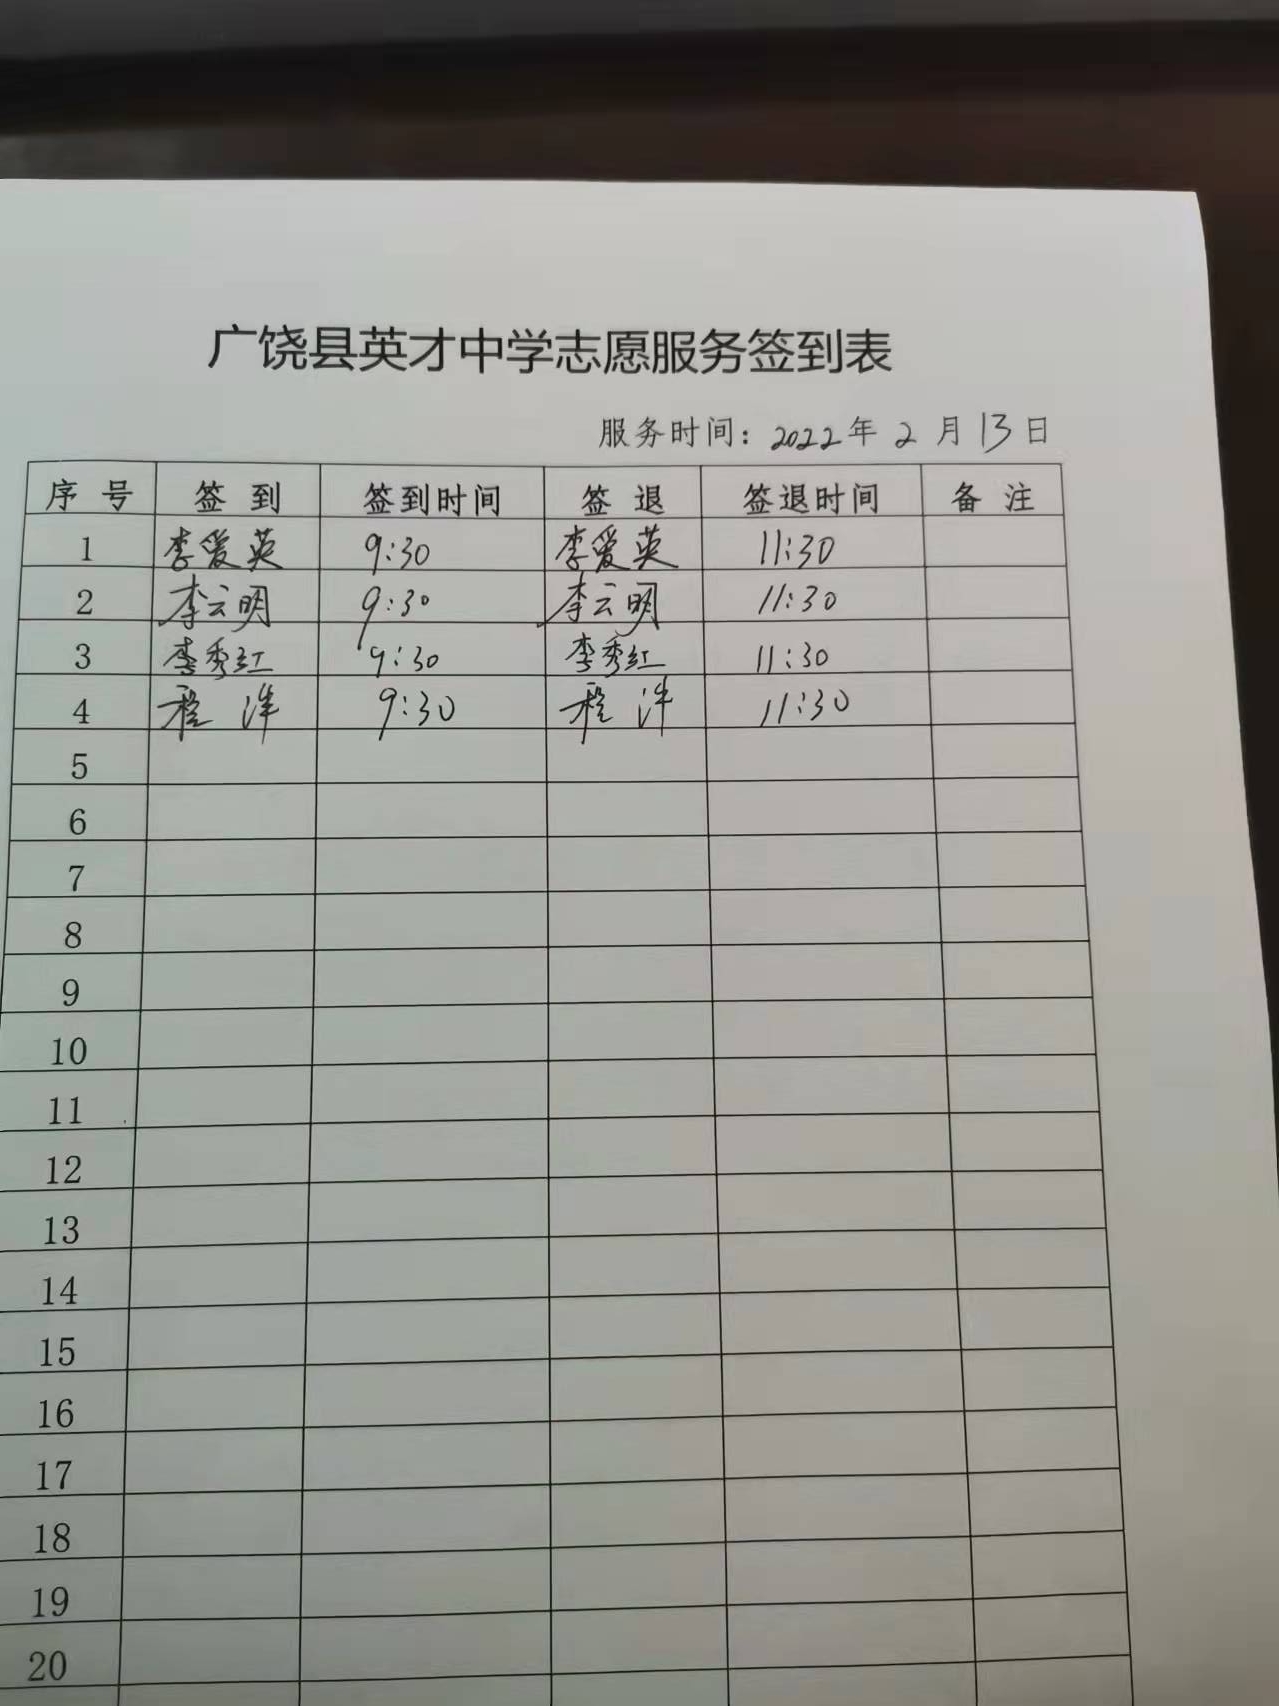 广饶县英才中学志愿服务签到表
服务时间：2022年2月13日
序号 签到 签到时间 签退 签退时间 备注
1 李爱英 9:30 李爱英 11:30
2 李云明 9:30 李云明 11:30
3 李秀红 9:30 李秀红 11:30
4 程洋 9:30 程洋 11:30
5
6
7
8
9
10
11
12
13
14
15
16
17
18
19
20